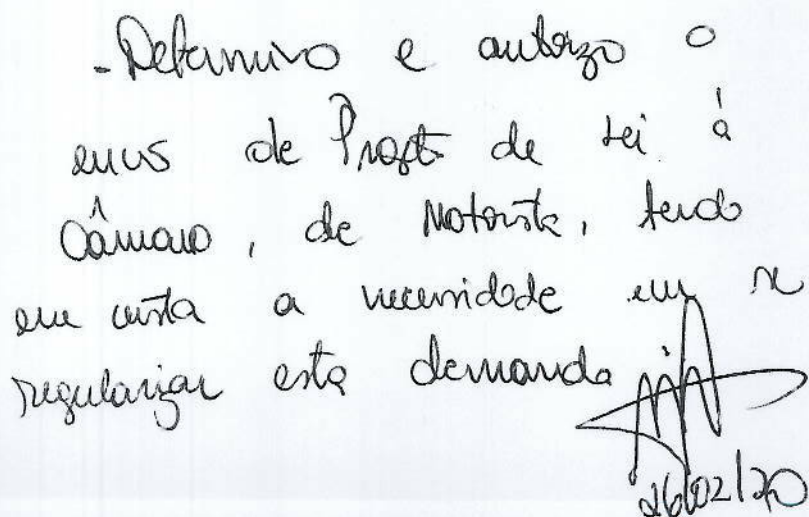 - Determino e autorizo o
envio de Projeto de Lei à
Câmara, de Motorista, tendo
em vista a necessidade em se
regularizar esta demanda
26/02/20